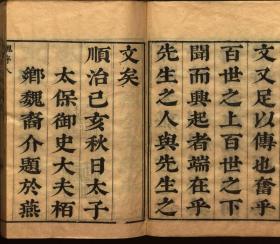 文又足以傳也奮乎
百世之上百世之下
聞而興起者端在乎
先生之人與先生之
文矣
順治己亥秋日太子
太保御史大夫栢
鄉魏裔介題於燕